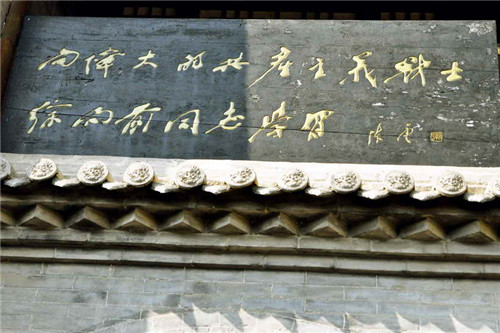 向伟大的共产主义战士
徐向前同志学习
陈云